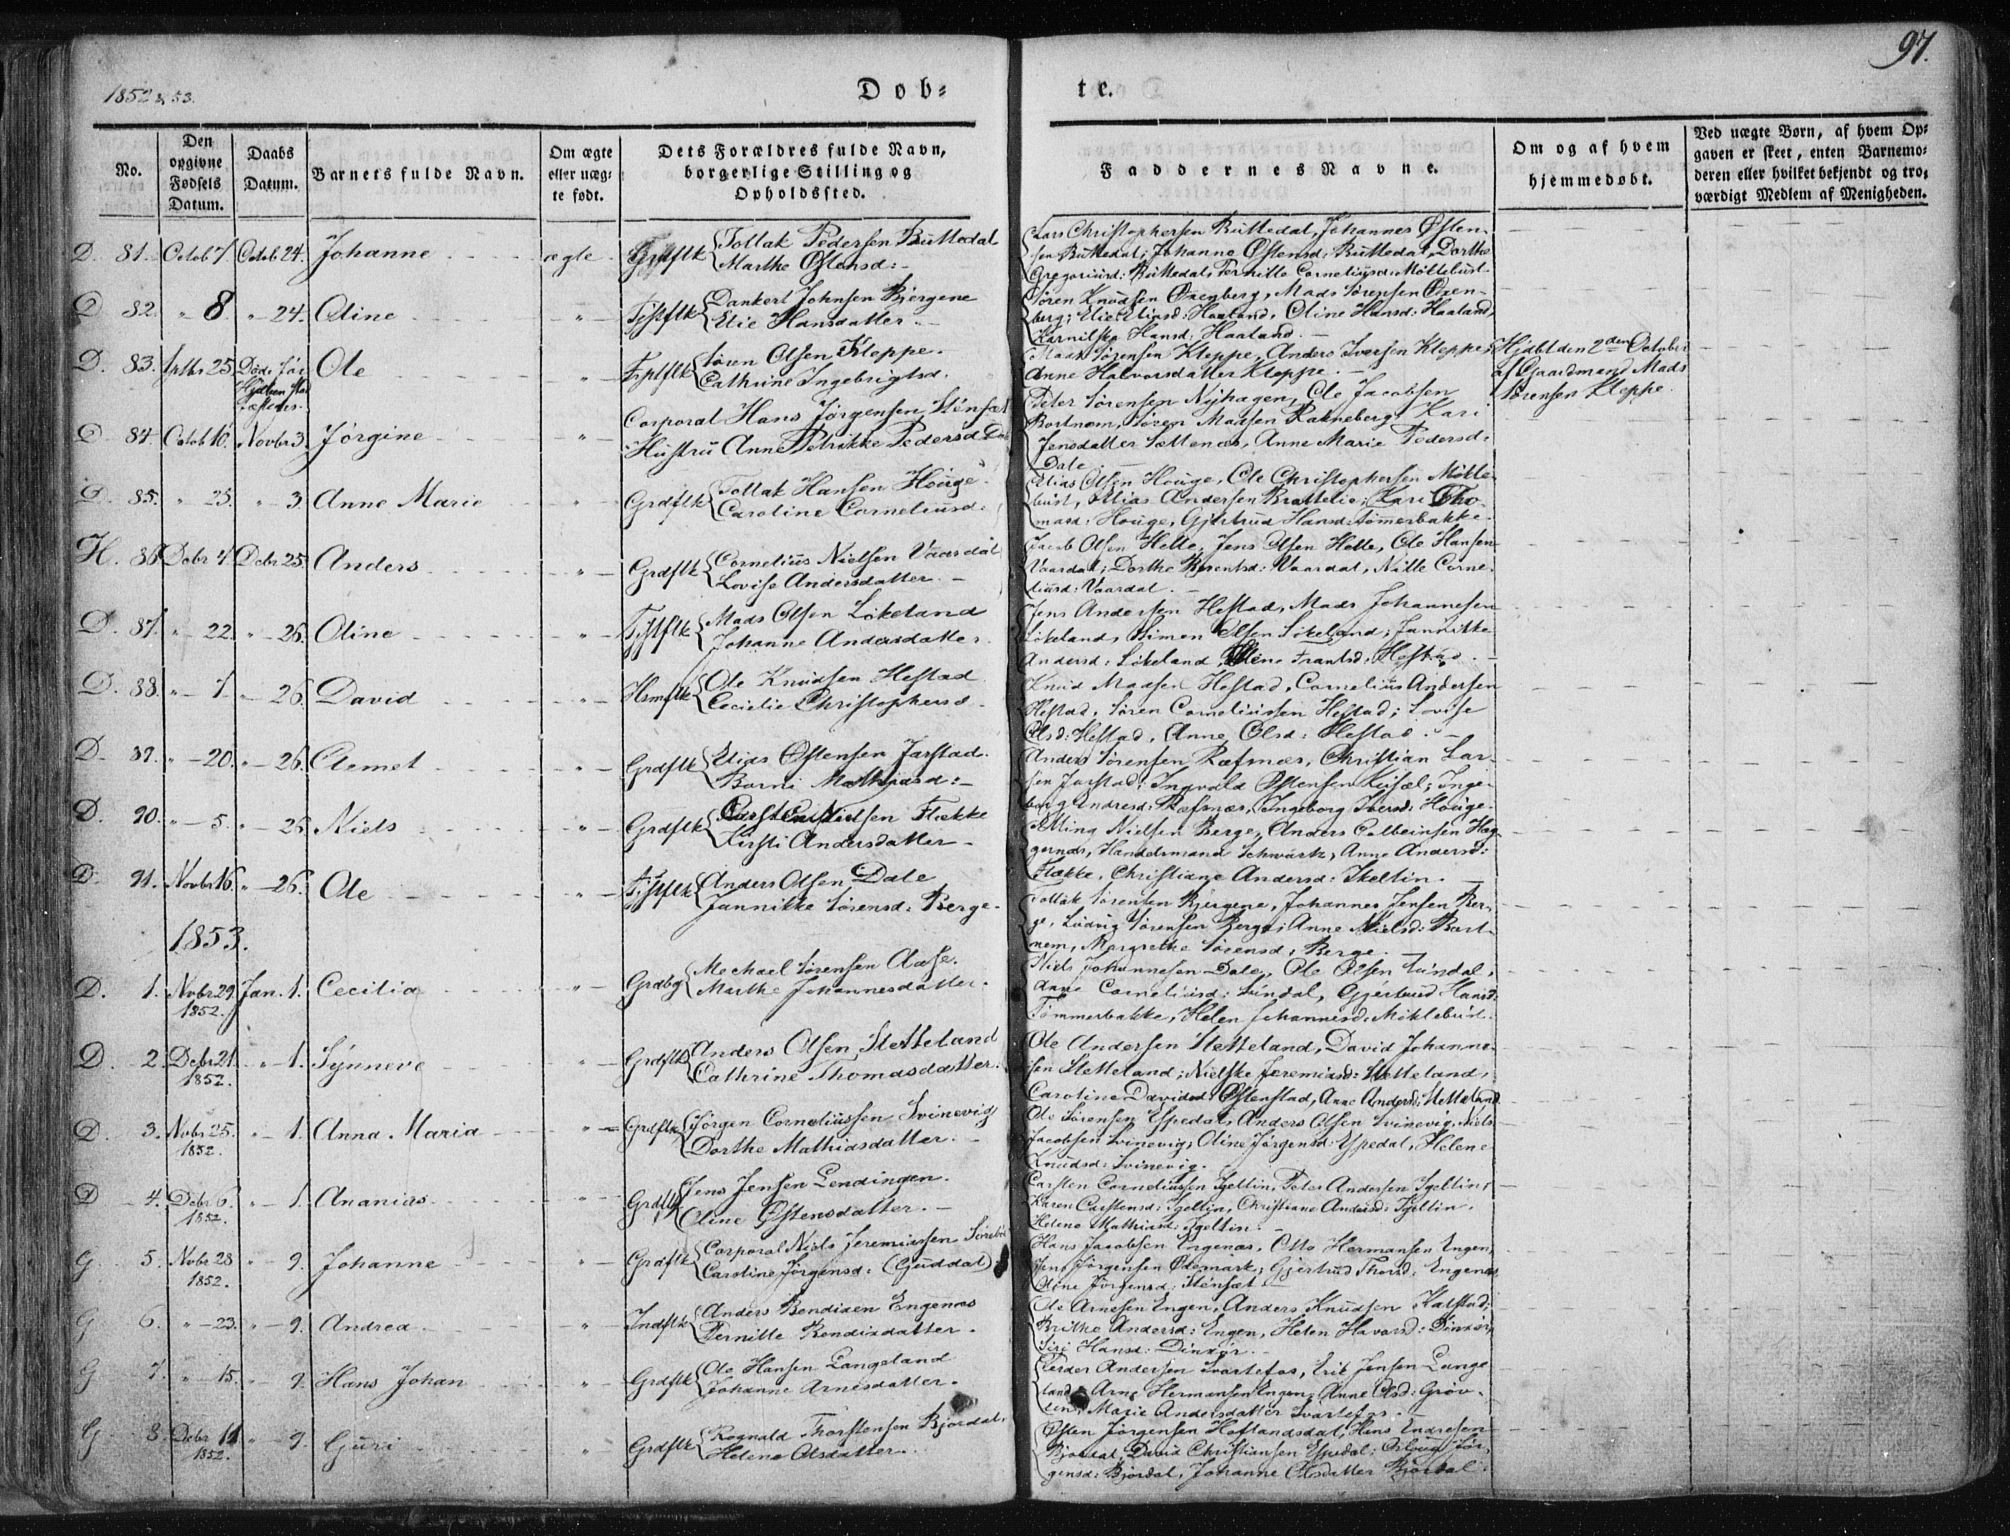 97.
1852 & 53.
Dob=
te.
No.
Den opgivne Fødsels Datum.
Daabs Datum.
Barnets fulde Navn.
Om ægte eller uæg= te født.
Dets Forældres fulde Navn, borgerlige Stilling og Opholdssted.
Faddernes Navne.
Om og af hvem hjemmedøbt.
Ved uægte Børn, af hvem Op= gaven er skeet, enten Barnemo= deren eller hvilket bekjendt og tro= værdigt Medlem af Menigheden.
D. 81. Octob 7. Octob. 24. Johanne ægte Grdflk Tollak Pedersen Buttedal
Marthe Østensd:
Lars Christophersen Buttedal, Johannes Østen-
sen Buttedal; Johanne Østensd: Buttedal, Dorthe
Gregoriusd: Buttedal, Pernille Corneliusd: Miklebust
D 82. " 8. " 24. Oline " Dankert Johnsen Bjergene
Elie Hansdatter
Søren Knudsen Oxenberg, Mads Sørensen Oxen-
berg; Elie Eliasd: Haaland, Oline Hansd: Haaland,
Hansd: Haaland.
D. 83. Septbr 25. Døde før
Ole " Søren Olsen Kleppe.
Cathrine Ingebrigtsd.
Mads Sørensen Kleppe, Anders Iversen Kleppe,
Anne Halvorsdatter Kleppe.
Hjdbt den 2den October
af Gaardmand Mads
Sørensen Kleppe.
D. 84. Octob 10. Novbr 3. Jørgine " Corporal Hans Jørgensen Stensæt
Hustru Anne Petrikke Pedersd Dale
Peter Sørensen Nyhagen, Ole Jacobsen
Bortnem, Søren Madsen Ranneberg; Kari
Jensdatter Sættenæs, Anne Marie Pedersd:
Dale
D. 85. " 25. " 3. Anne Marie " Grdflk Tollak Hansen Houge
Caroline Corneliusd:
Elias Olsen Houge, Ole Christophersen Mikle-
bust, Elias Andersen Brattelie; Kari Tho-
masd: Houge, Gjertrud Hansd: Tømerbakke.
H. 86 Debr 4. Debr 25. Anders " Grdflk Cornelius Nielsen Vaardal
Lovise Andersdatter.
Jacob Olsen Helle, Jens Olsen Helle, Ole Hansen
Vaardal; Dorthe Berentsd: Vaardal, Nille Corne-
liusd: Vaardal.
D. 87. " 22. " 26. Oline " Mads Olsen Løkeland
Johanne Andersdatter
Jens Andersen Hestad, Mads Johannesen
Løkeland, Simen Olsen Løkeland; Jannikke
Andersd: Løkeland, Frantsd: Hestad.
D. 88. " 7. " 26. David " Hsmflk Ole Knudsen Hestad
Cecielie Christophersd.
Knud Madsen Hestad, Cornelius Andersen
Hestad, Søren Corneliussen Hestad; Lovise
Olsd: Hestad, Anne Olsd: Hestad.
D. 89. " 20. " 26. Clemet " Grdflk Elias Østensen Jarstad.
Borni Mathiasd:
Anders Sørensen Ræfsnæs, Christian Lar-
sen Jarstad; Ingvald Østensen; Inge-
borg Andresd: Ræfsnæs, Ingeborg Iversd: Houge.
D. 90. " 5. " 26. Niels " Grdflk Carsten Nielsen Flekke
Kirsti Andersdatter
Elling Nielsen Berge, Anders Colbeinsen Hag-
genæs, Handelsmand Schwartz, Anne Andersd:
Flække, Christiane Andersd: Skeltin.
D. 91. Novbr 16. " 26. Ole " Anders Olsen Dale
Jannikke Sørensd: Berge.
Tollak Sørensen Bjergene, Johannes Jensen Ber-
ge, Ludvig Sørensen Berge; Anne Nielsd: Bort-
nem, Margrethe Sørensd: Berge.
1853.
D. 1. Novbr 29. 1852. Jan. 1. Cecilia " Grdbg Mechael Sørensen Aase.
Marthe Johannesdatter.
Niels Johannesen Dale, Ole Olsen Sundal,
Anne Corneliusd: Sundal, Gjertrud Hansd:
Tømmerbakke, Helen Johannesd: Miklebust.
D 2. Debr 21. 1852. " 1. Synneve " Grdflk Anders Olsen Stetteland
Cathrine Thomasdatter.
Ole Andersen Stetteland, David Johanne-
sen Stetteland; Nielske Jeremiasd: Stetteland,
Caroline Davidsd Østenstad, Anne Andersd: Stetteland
D. 3. Novbr 25. 1852. " 1. Anna Maria " Grdflk Jørgen Corneliussen Svinevig
Dorthe Mathiasdatter.
Ole Sørensen Espedal, Anders Olsen Svinevig, Niels
Jacobsen Svinevig; Oline Jørgensd: Yspedal, Helene
Knudsd: Svinevig.
D 4. Debr 6. 1852. " 1. Ananias " Grdflk Jens Jensen Lendingen.
Oline Østensdatter.
Carsten Corneliussen Tyeltin, Peter Andersen Tyeltin,
Karen Carstensd: Tyeltin, Christiane Andersd: Tyeltin,
Helene Mathiasd: Tyeltin.
G 5. Novbr 28 1852. " 9. Johanne " Grdflk Corporal Niels Jeremiassen
Caroline Jørgensd: (Guddal)
Hans Jacobsen Engenæs, Otto Hermansen Engen,
Jens Jørgensen Ødemark; Gjertrud Thorsd: Engenæs,
Oline Jørgensd: Stensæt.
G 6. " 23. " 9. Andrea " Indflk Anders Bendixen Engenæs
Pernille Bendixdatter.
Ole Arnesen Engen, Anders Knudsen Kalstad;
Brithe Andersd: Engen, Helen Havorsd: Dinxør,
Siri Hansd: Dinxør.
G 7. " 15. " 9. Hans Johan " Grdflk Ole Hansen Langeland
Johanne Arnesdatter.
Peder Andersen Svartefos, Erik Jensen Lange
land, Arne Hermansen Engen; Anne Olsd: Grøv-
len, Marie Andersdatter Svartefos.
G 8. Debr 11. 1852. " 9. Guri " Grdflk Rognald Thorstensen Bjordal,
Helene Olsdatter.
Østen Jørgensen Hoflandsdal, Hans Endresen
Bjordal, David Christiansen Espedal; Jør-
gensd: Bjordal, Johanne Olsdatter Bjordal.